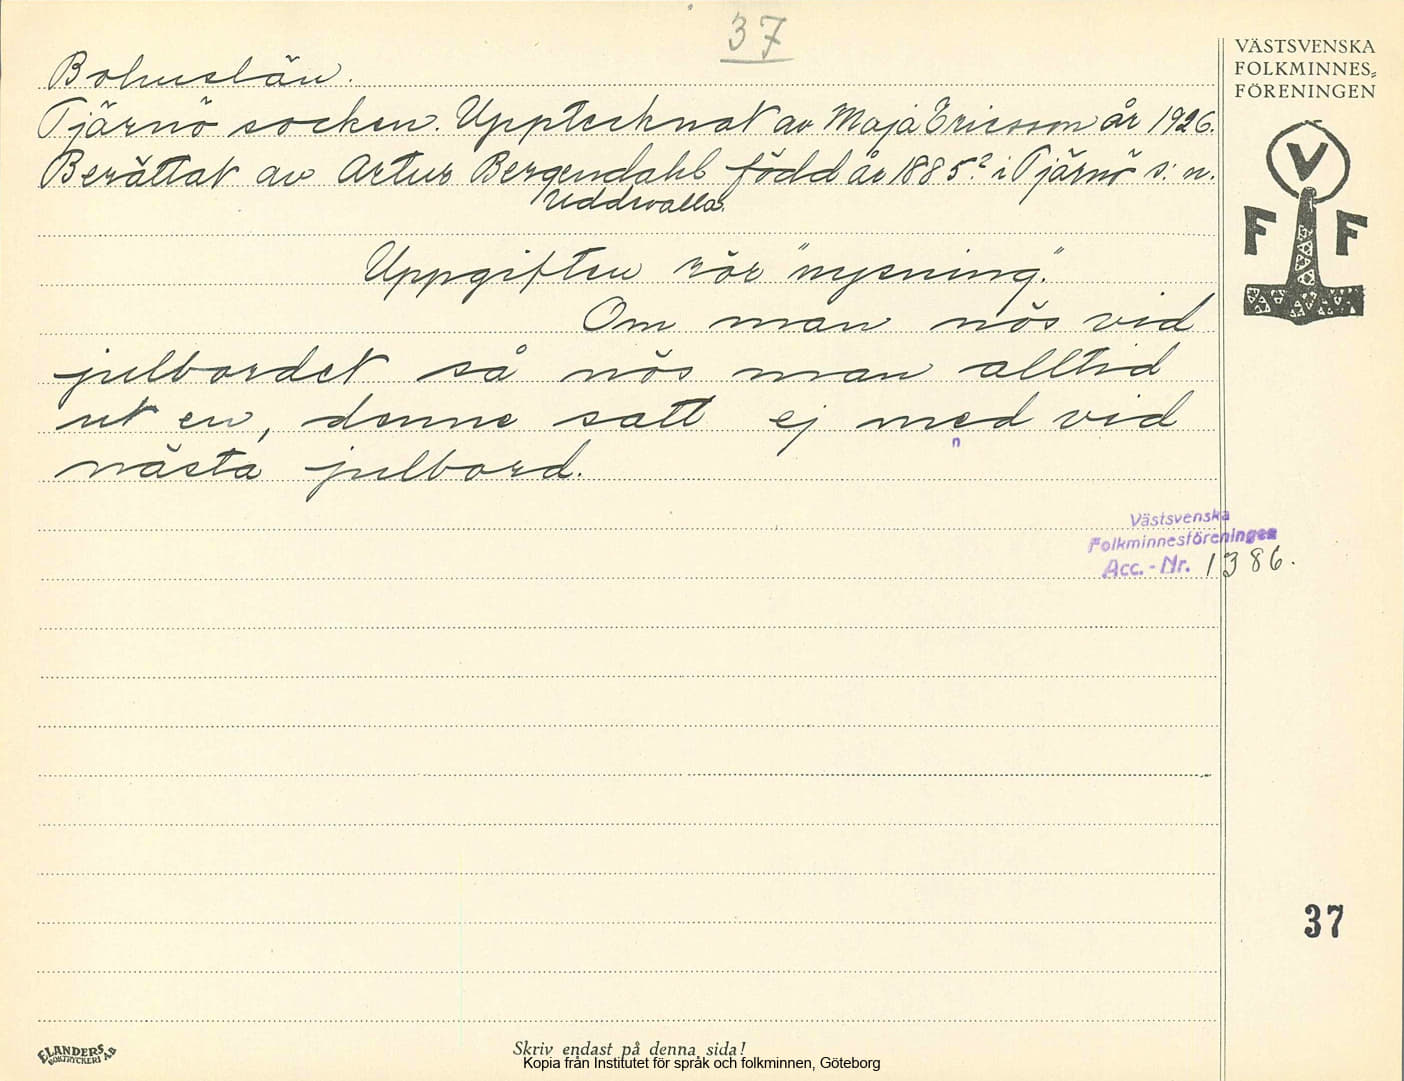 37
VÄSTSVENSKA
FOLKMINNES-
FÖRENINGEN
V
F F
Bohuslän.
Tjärnö socken. Upptecknat av Maja Ericsson år 1926.
Berättat av Artur Bergendahl född år 1885? i Tjärnö s:n.
Uddevalla.
Uppgiften rör "nysning".
Om man nös vid
julbordet så nös man alltid
ut en, denne satt ej med vid
n
nästa julbord.
Västsvenska
Folkminnesföreningen
Acc.-Nr. 1386.
37
ELANDERS
BOKTRYCKERI AB
Skriv endast på denna sida!
Kopia från Institutet för språk och folkminnen, Göteborg